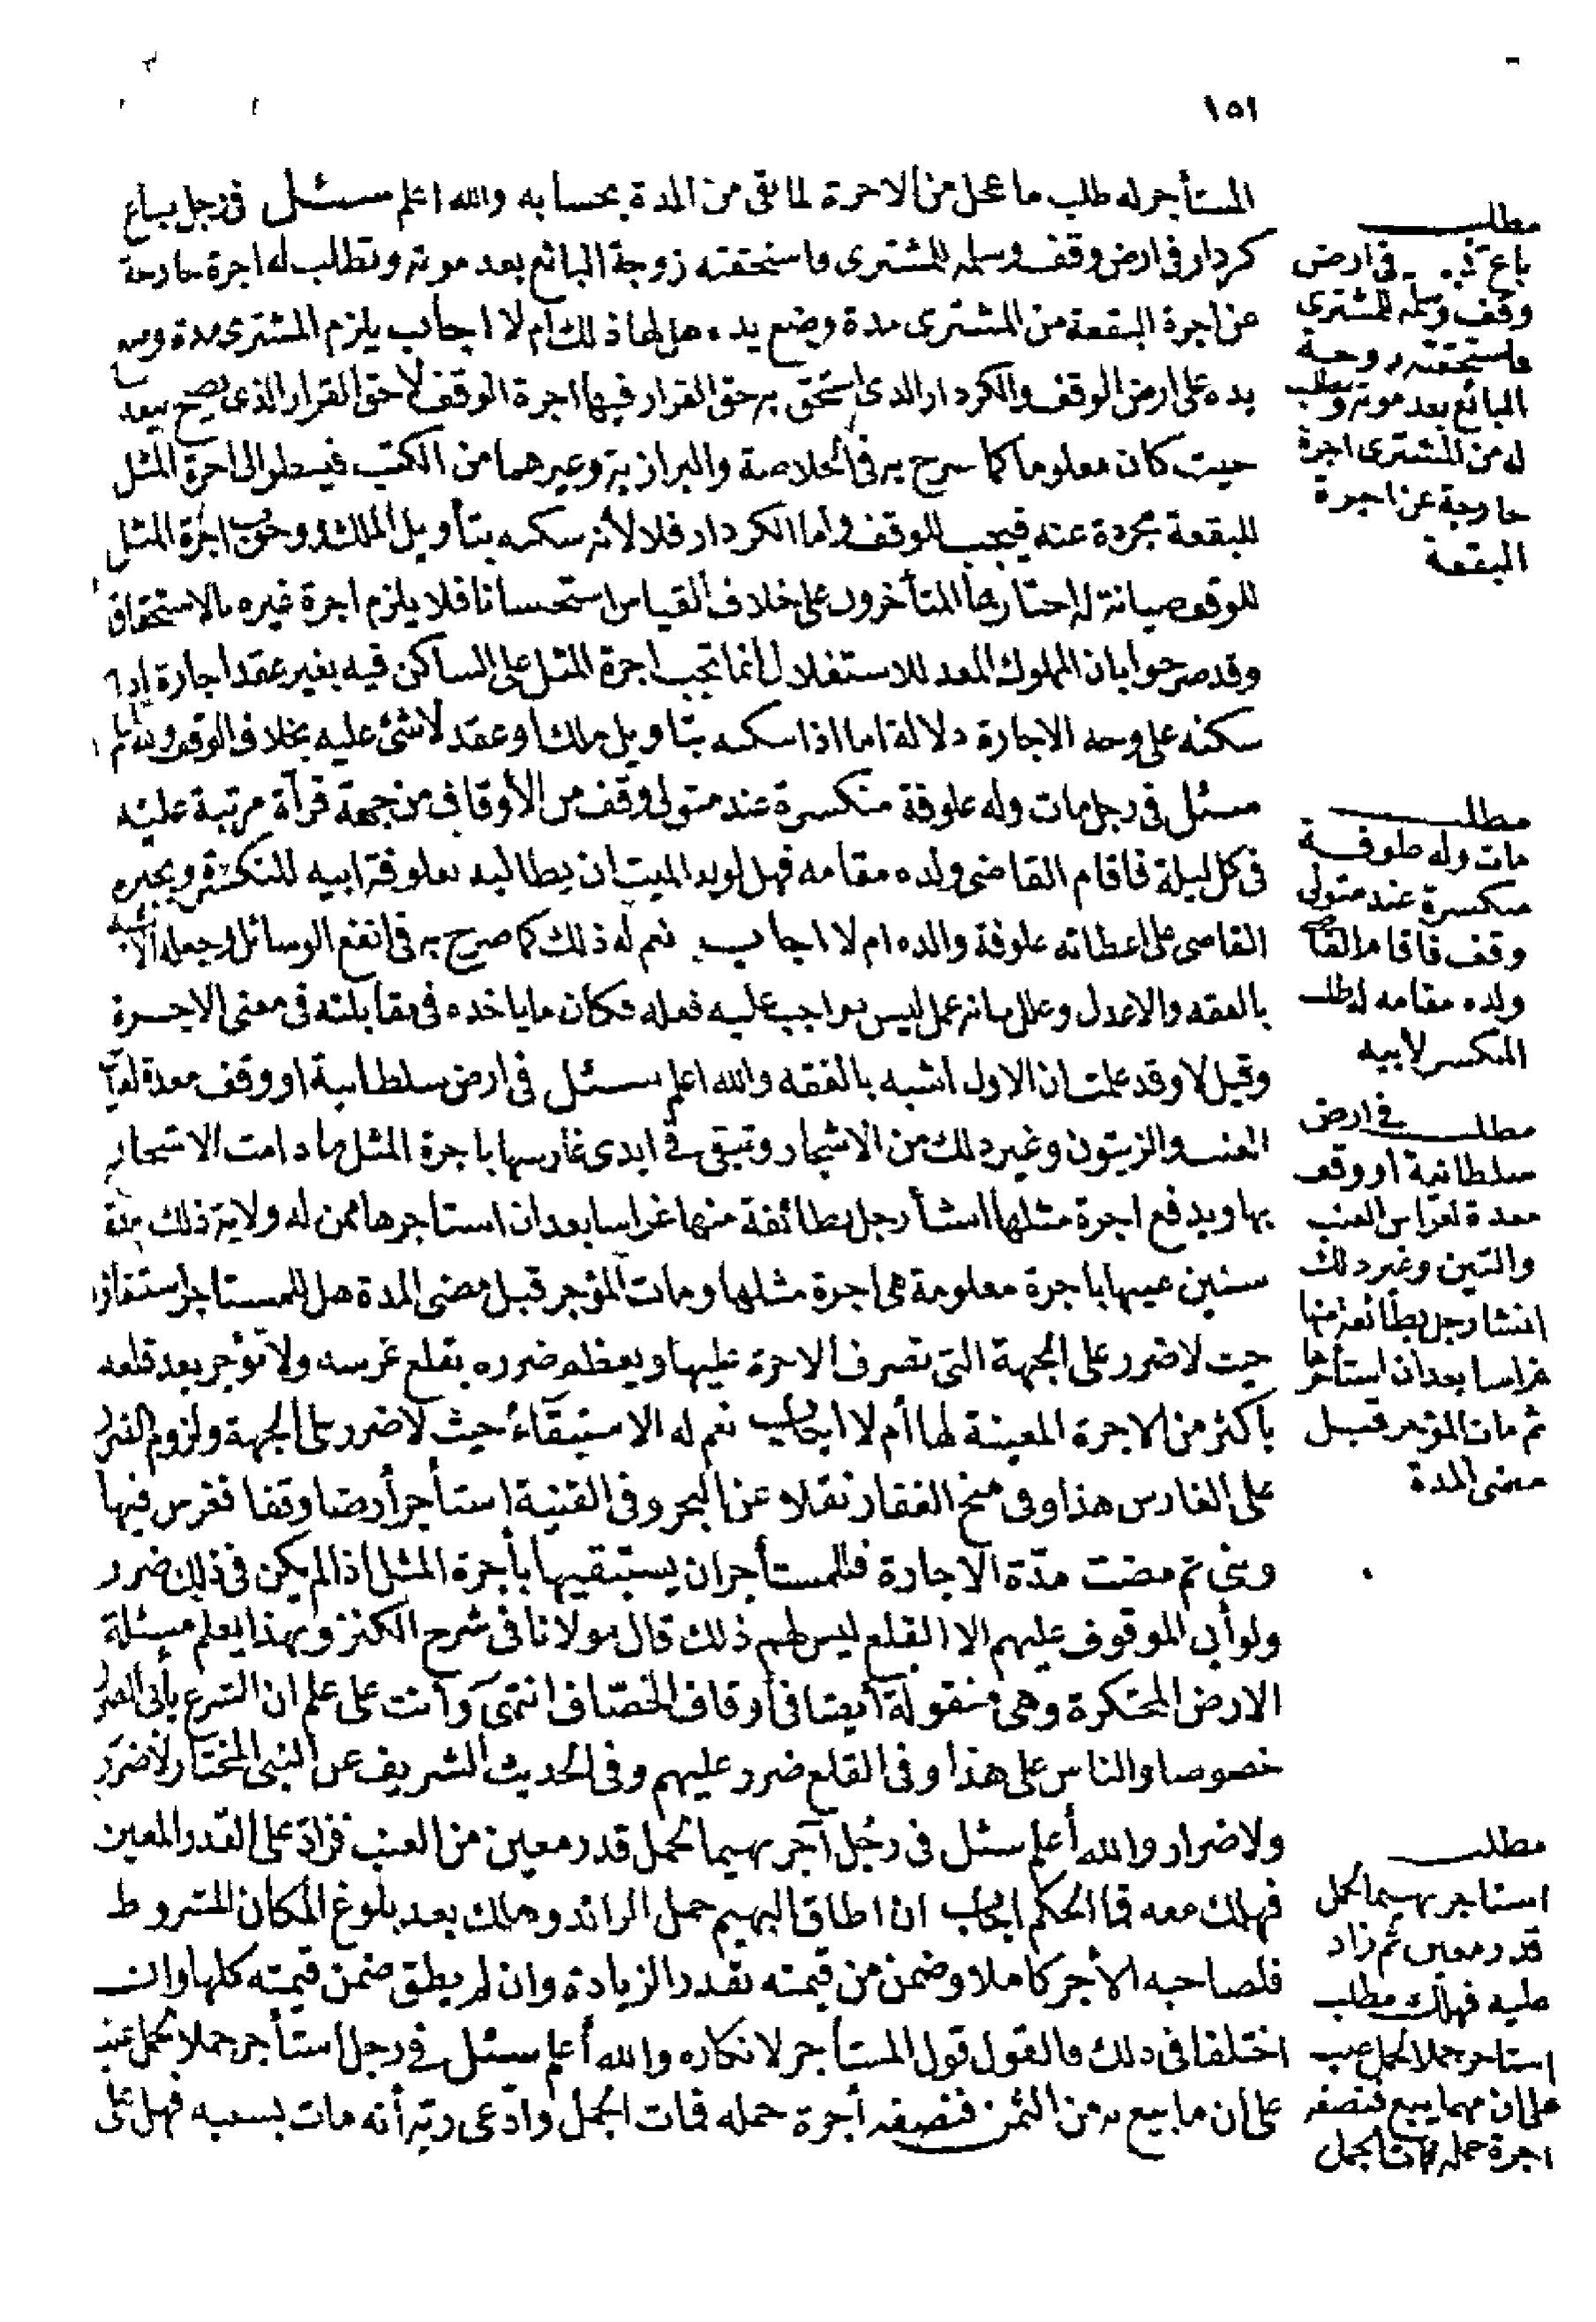 ١٥١
المستأجر له طلب ما عجل من الاجرة لما بقى من المدة بحسابه والله اعلم سئل فى رجل باع
كردار فى ارض وقف وسلمه للمشترى فاستحقته زوجة البائع بعد موته وتطالب له اجرة خارجة
عن اجرة البقعة من المشترى مدة وضع يده هل لها ذلك ام لا اجاب يلزم المشترى مدة وضع
يده على ارض الوقف والكردار الذى استحق به حق القرار فيها اجرة الوقف لا حق القرار الذى يصح بيعه
حيث كان معلوما كما صرح به فى الخلاصة والبزازية وغيرهما من الكتب فينظر الى اجرة المثل
للبقعة مجردة عنه فيجب للوقف واما الكردار فلا لأنه سكنه بتأويل الملك ووجوب اجرة المثل
للوقف صيانة له اختارها المتأخرون على خلاف القياس استحسانا فلا يلزم اجرة غيره بالاستحقاق
وقد صرحوا بان المملوك المعد للاستغلال انما تجب اجرة المثل على الساكن فيه بغير عقد اجارة اذا
سكنه على وجه الاجارة دلالة اما اذا سكنه بتاويل ملك او عقد لا شئ عليه بخلاف الوقف
سئل فى رجل مات وله علوفة منكسرة عند متولى وقف من الأوقاف من جهة قرآة مرتبة عليه
فى كل ليلة فاقام القاضى ولده مقامه فهل لولد الميت ان يطالبه بعلوفة ابيه المنكسرة ويجبره
القاضى على اعطائه علوفة والده ام لا اجاب نعم له ذلك كما صرح به فى انفع الوسائل وجعله الأشبه
بالفقه والاعدل وعلل بانه عمل ليس بواجب عليه فعله فكان ما ياخذه فى مقابلته فى معنى الاجرة
وقيل لا وقد علمت ان الاول اشبه بالفقه والله اعلم سئل فى ارض سلطانية او وقف معدة لغراس
العنب والزيتون وغير ذلك من الاشجار وتبقى فى ايدى غارسها باجرة المثل ما دامت الاشجار
بها ويدفع اجرة مثلها انشأ رجل بطائفة منها غراسا بعد ان استاجرها ممن له ولاية ذلك مدة
سنين عينها باجرة معلومة هى اجرة مثلها ومات المؤجر قبل مضى المدة هل للمستاجر استبقاؤه
حيث لا ضرر على الجهة التى تصرف الاجرة عليها ويعظم ضرره بقلع غرسه ولا تؤجر بعد قلعه
باكثر من الاجرة المعينة لها أم لا اجاب نعم له الاستبقاء حيث لا ضرر على الجهة ولزوم الضرر
على الغارس هذا وفى منح الغفار نقلا عن البحر وفى القنية استأجر أرضا وقفا فغرس فيها
وبنى ثم مضت مدّة الاجارة فللمستأجر ان يستبقيها بأجرة المثل اذا لم يكن فى ذلك ضرر
ولو أبى الموقوف عليهم الا القلع ليس لهم ذلك قال مولانا فى شرح الكنز وبهذا يعلم مسئلة
الارض المحتكرة وهى منقولة أيضا فى أوقاف الخصّاف انتهى وأنت على علم ان الشرع يأبى الضرر
خصوصا والناس على هذا وفى القلع ضرر عليهم وفى الحديث الشريف عن النبى المختار لا ضرر
ولا ضرار والله أعلم سئل فى رجُل آجر بهيما لحمل قدر معين من العنب فزاد على القدر المعين
فهلك معه فما الحكم اجاب ان اطاق البهيم حمل الزائد وهلك بعد بلوغ المكان المشروط
فلصاحبه الأجر كاملا وضمن من قيمته بقدر الزيادة وان لم يطق ضمن قيمته كلها وان
اختلفا فى ذلك فالقول قول المستأجر لانكاره والله أعلم سئل فى رجل استأجر جملا لحمل عنب
على ان ما بيع به من الثمن فنصفه أجرة حمله فمات الجمل وادّعى ربّه أنه مات بسببه فهل على
مطلب
باع فى ارض
وقف وسلمه للمشترى
فاستحقته زوجة
البائع بعد موته وتطلب
له من المشترى اجرة
خارجة عن اجرة
البقعة
مطلب
مات وله علوفة
منكسرة عند متولى
وقف فاقام القاضى
ولده مقامه له طلب
المنكسر لابيه
مطلب فى ارض
سلطانية او وقف
معدة لغراس العنب
والتين وغير ذلك
انشا رجل بطائفة منها
غراسا بعد ان استأجرها
ثم مات المؤجر قبل
مضى المدة
مطلب
استاجر بهيما لحمل
قدر معين ثم زاد
عليه فهلك مطلب
استاجر جملا لحمل عنب
على ان مهما يبيع فنصفه
اجرة حمله فمات الجمل